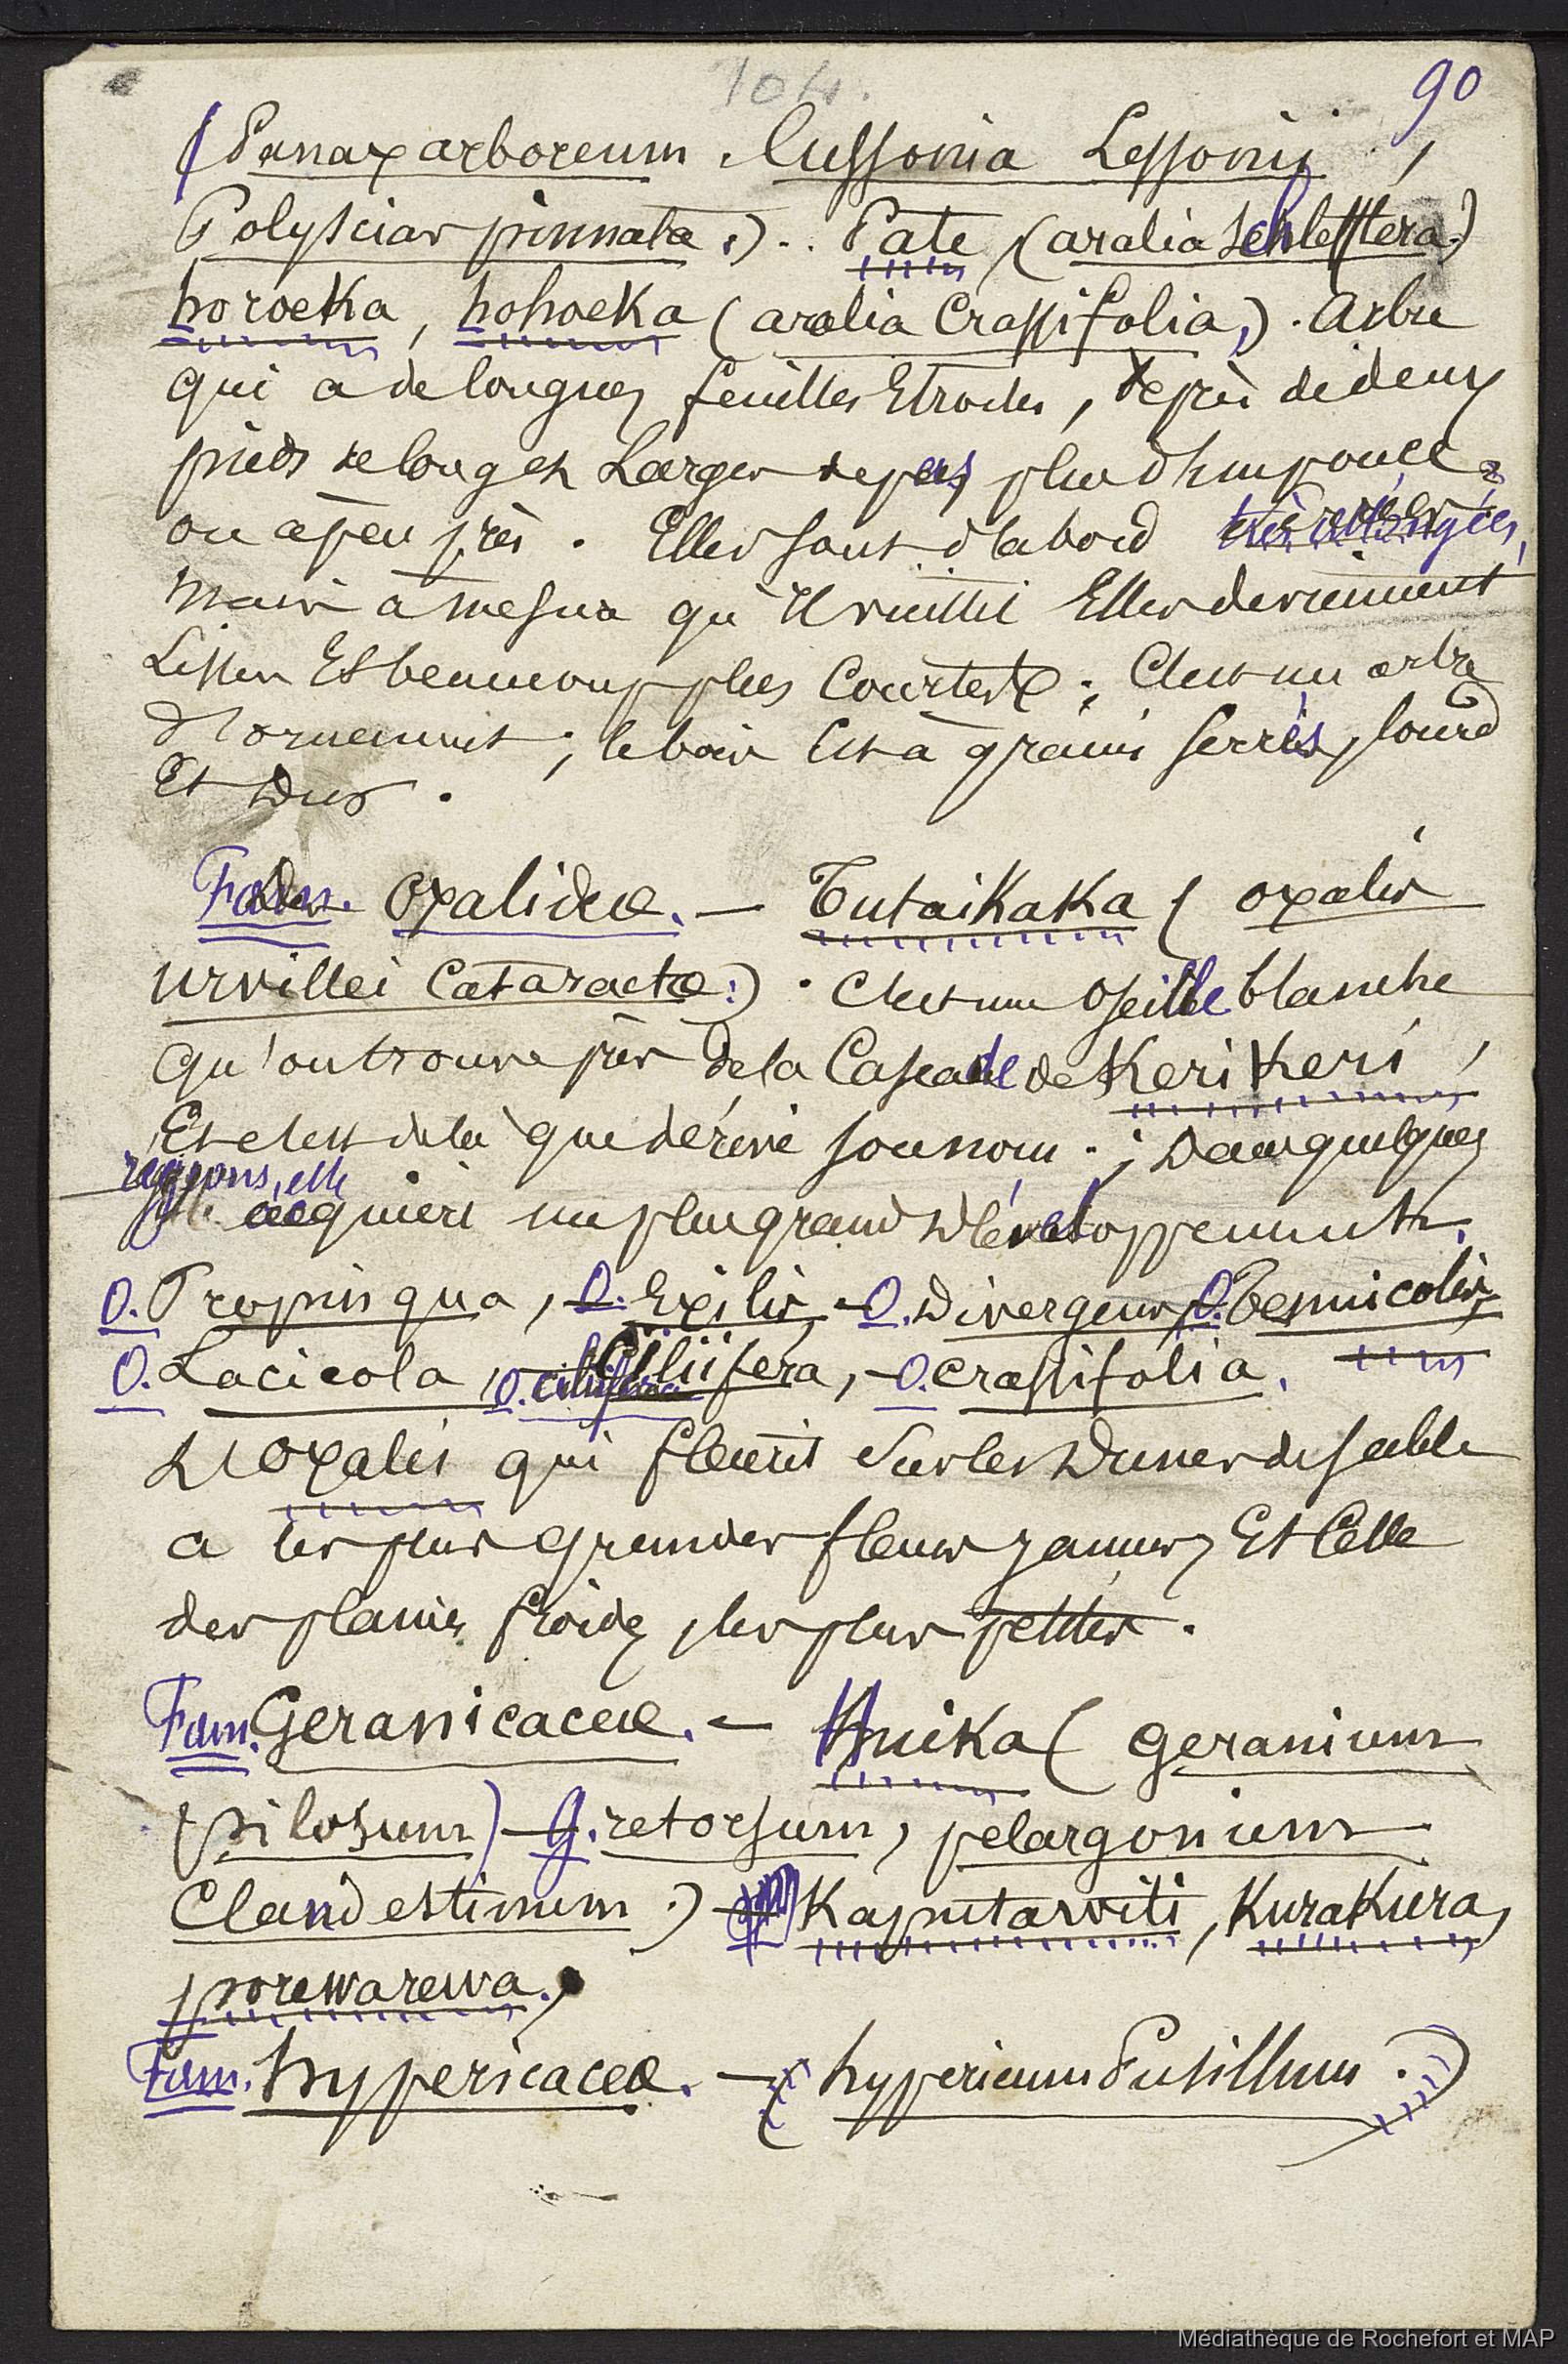 104.
90
(Panax arboreum, Cussonia Lessonij,
Polysciar pinnata.).. Pate (aralia Schefflera.)
horoeka, hohoeka (aralia Crassifolia,). Arbre
qui a de longues feuilles Etroites, de près de deux
pieds de long et Larges de pas plus d'un pouce
ou à peu près. Elles sont d'abord très allongées,
mais à mesure qu'Il vieillit Elles deviennent
Lisses Et beaucoup plus Courtes; C'est un arbre
d'ornement; le bois Est à grains serrés, lourd
Et Dur.
Fam. Oxalideæ. — Tutaikaka (oxalis
urvillei Cataractæ:). C'est une oseille blanche
qu'on trouve près de la Cascade de Kerikeri,
Et c'est de là que dérive son nom.; Dans quelques
régions, elle
acquiert un plus grand Développement.
O. Propinqua, O. Exilis, O. Divergens, O. Tenuicolis,
O. Lacicola, O. ciliifera Ciliifera, O. Crassifolia.
L'oxalis qui fleurit Sur les Dunes de sable
a les plus grandes fleurs jaunes, Et Celle
des plaines froides, les plus petites.
Fam. Geranicaceæ. — Huika (geranium
pilosum) — G. retorsum, pelargonium
Clandestinum.) — Kaputarviti, Kurakura,
porewarewa.
Fam. hypericaceæ. — (hypericum Pusillum.)
Médiathèque de Rochefort et MAP